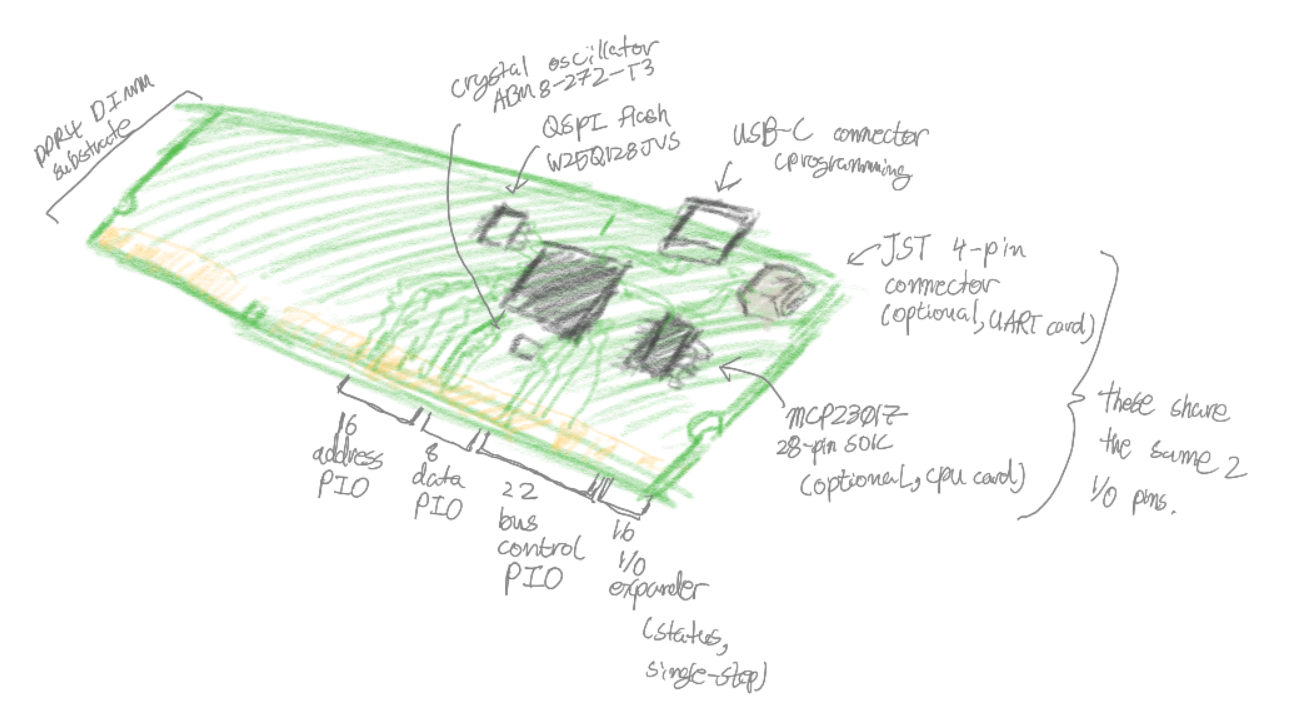 DDR4 DIMM
substrate
crystal oscillator
ABM8-272-T3
QSPI flash
W25Q128JVS
USB-C connector
(programming
JST 4-pin
connector
(optional, UART card)
MCP23017
28-pin SOIC
(optional, cpu card)
these share
the same 2
I/O pins.
16
address
PIO
8
data
PIO
22
bus
control
PIO
16
I/O
expander
(status,
single-step)